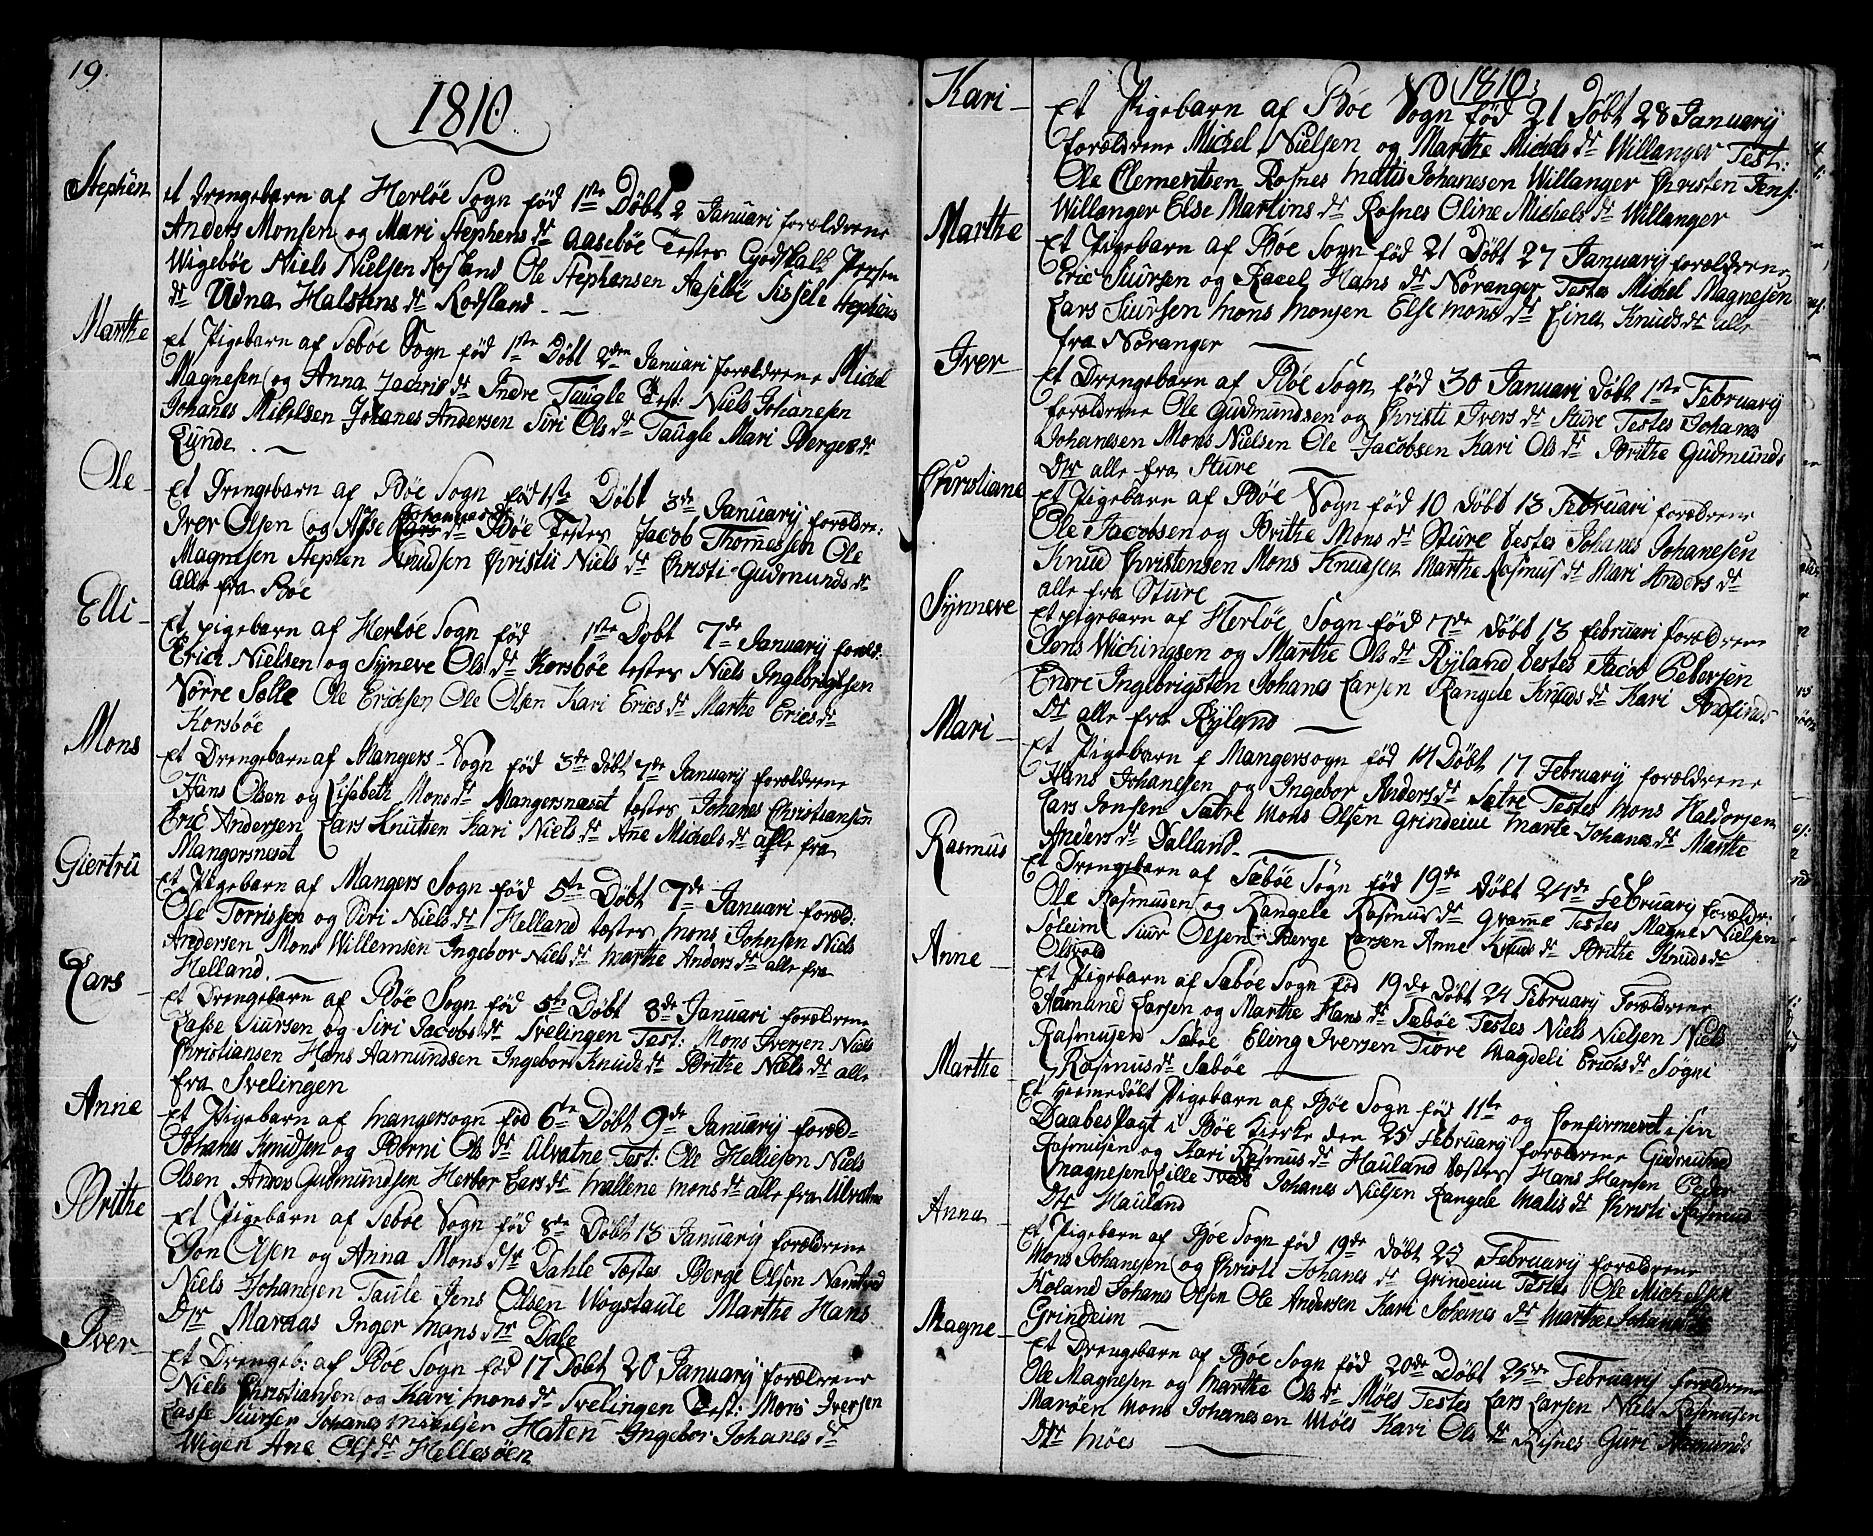 19.
1810
Stephen
et Drengebarn af Herløe Sogn fød 1ste Døbt 2 Januari foræeldrene
Anders Monsen og Mari Stephens dr Aasebøe Testes Godskalk Persen
Wigebøe Niels Nielsen Rosland Ole Stephensen Aasebøe Sissele Stephens
dr Udna Halstens dr Rodsland
Marthe
et Pigebarn af Sæbøe Sogn fød 1ste Døbt 2den Januari foræeldrene Michel
Magnesen og Anna Zacaris dr Indre Taugle Test: Niels Johanesen
Johanes Mikelsen Johanes Andersen Siri Ols dr Taugle Mari Berges dr
Lunde
Ole
Et Drengebarn af Bøe Sogn fød 1ste Døbt 3de Januarij foræeldre:
Iver Olsen og Aase Johannes dr Bøe Testes Jacob Thomessen Ole
Magnesen Stephen Knudsen Christii Niels dr Christi Gudmunds dr
alle fra Bøe
Elli
Et pigebarn af Herløe Sogn fød 1ste Døbt 7de Januarij foreld:
Erick Nielsen og Syneve Ols dr Korsbøe testes Niels Ingebrigtsen
Nørre Sølte Ole Ericksen Ole Olsen Kari Erics dr Marthe Erics dr
Korsbøe
Mons
Et Drengebarn af Mangers Sogn fød 3de døbt 7de Januarij foræeldrene
Hans Olsen og Lisabeth Mons dr Mangersnæset testes Johanes Christiansen
Eric Andersen Lars Knutsen Kari Niels dr Ane Michels dr alle fra
Mangersneset
Giertru
et Pigebarn af Mangers Sogn fød 5te Døbt 7de Januari foræld:
Ole Torrissen og Siri Niels dr Helland testes Mons Johnsen Niels
Andersen Mons Willemsen Ingebor Niels dr Marthe Anders dr alle fra
Helland.
Lars
Et Drengebarn af Bøe Sogn fød 5te Døbt 8de Januari foræeldrene
Lasse Siursen og Siri Jacobs dr Svelingen Test: Mons Iversen Niels
Christiansen Hans Aasmundssen Ingebor Knuds dr Brithe Niels dr alle
fra Svelingen
Anne
Et Pigebarn af Mangersogn fød 6te Døbt 9de Januarij foræld-
Johanes Knudsen og Børni Ols dr Alvatne Test: Ole Helliesen Niels
Olsen Anders Gudmundsen Herbor Lars dr Mallene Mons dr alle fra Alvatne
Brithe
Et Pigebarn af Sæbøe Sogn fød 8de Døbt 13 Januarij foræeldrene
Jon Olsen og Anna Mons dtr Dahle Testes Berge Olsen
Niels Johanesen Taule Jens Olsen Wogstaule Marthe Hans
Dtr Maraas Inger Mons dtr Dale
Iver
Et Drengeb: af Bøe Sogn fød 17 Døbt 20 Januarij foræeldrene
Niels Christiansen og Kari Mons dr Svelingen Test: Mons Iversen
Lasse Siursen Johanes Haten Ingebor Johanes dr
Wigen Ane Ols dr Hellesøen
1810
Kari
Et Pigebarn af Bøe Sogn fød 21 Døbt 28 Januarij
foræeldrene Michel Nielsen og Marthe Michels dr Willanger Test:
Ole Clementsen Rosnes Matis Johanesen Willanger Christen Jens:
Willanger Else Martins dr Rosnes Oline Michels dr Willanger
Marthe
Et Pigebarn af Bøe Sogn fød 21 Døbt 27 Januarij foræeldrene
Eric Siursen og Racel Hans dr Noranger Testes Michel Magnesen
Lars Siursen Mons Monsen Else Mons dr Eina Knuds dr alle
fra Noranger
Iver
Et Drengebarn af Bøe Sogn fød 30 Januari Døbt 1ste Februarij
foræeldrene Ole Gudmundsen og Christi Ivers dr Sture Testes Johanes
Johanesen Mons Nielsen Ole Jacobsen Kari Ols dr Brithe Gudmunds
Dtr alle fra Sture
Christiane
Et Pigebarn af Bøe Sogn fød 10 Døbt 13 Februari foræeldrene
Ole Jacobsen og Brithe Mons dr Sture testes Johanes Johanesen
Knud Christensen Mons Knudsen Marthe Rasmus dr Mari Anders dr
alle fra Sture
Synneve
Et pigebarn af Herløe Sogn fød 7de Døbt 13 februari foræeldrene
Jens Wichingsen og Marthe Ols dr Ryland testes Jacob Pettersen
Endre Ingebrigsten Johanes Larsen Rangele Knuds dr Kari
Dr alle fra Ryland
Mari
Et Pigebarn f Mangersogn fød 14 Døbt 17 February foræeldrene
Hans Johanesen og Ingebor Anders dr Sætre Testes Mons Haldorsen
Lars Jonsen Sætre Mons Olsen Grindeim Marte Johanes dr Marthe
Anders dr Dalland
Rasmus
Et Drengebarn af Sæbøe Sogn fød 19de Døbt 24de Februarij foræeldr:
Ole Rasmusen og Rangele Rasmus dr Testes Magne Nielsen
Soleim Siur Olsen Berge Larsen Anne Knuds dr Brithe Knuds dr
Anne
Et Pigebarn af Sæbøe Sogn fød 19de Døbt 24 Februarij Foræeldrene
Aamund Larsen og Marthe Hans dr Sæbøe Testes Niels Nielsen Niels
Rasmusen Sæbøe Eling Iversen Tiore Magdeli Erics dr Søgni
Rasmus dr Sæbøe
Marthe
Et Hiemedøbt Pigebarn af Bøe Sogn fød 11te og Confirmeret i sin
Daabespagt i Bøe Kirke den 25 Februarij foræeldrene Gudmund
Rasmusen og Kari Rasmus dr Hauland Testes Hans Hansen Peder
Magnesen Johanes Nielsen Rangele Matis dr Christi Rasmus
Dtr Hauland
Anna
Et Pigebarn af Bøe Sogn fød 19de Døbt 25 Februarij foræeldrene
Mons Johanesen og Christi Johanes dr Grindeim Testes Ole Michelsen
Roland Johanes Olsen Ole Andersen Kari Johanes dr Marthe Johanes dr
Grindeim
Magne
Et Drengebarn af Bøe Sogn fød 20de Døbt 25de Februarij foræeldrene
Ole Magnesen og Marthe Ols dr Møes Testes Lars Larsen Niels Rasmusen
Marøen Mons Johanesen Møes Kari Ols dr Risnes Guri Aamunds
Dtr Møes